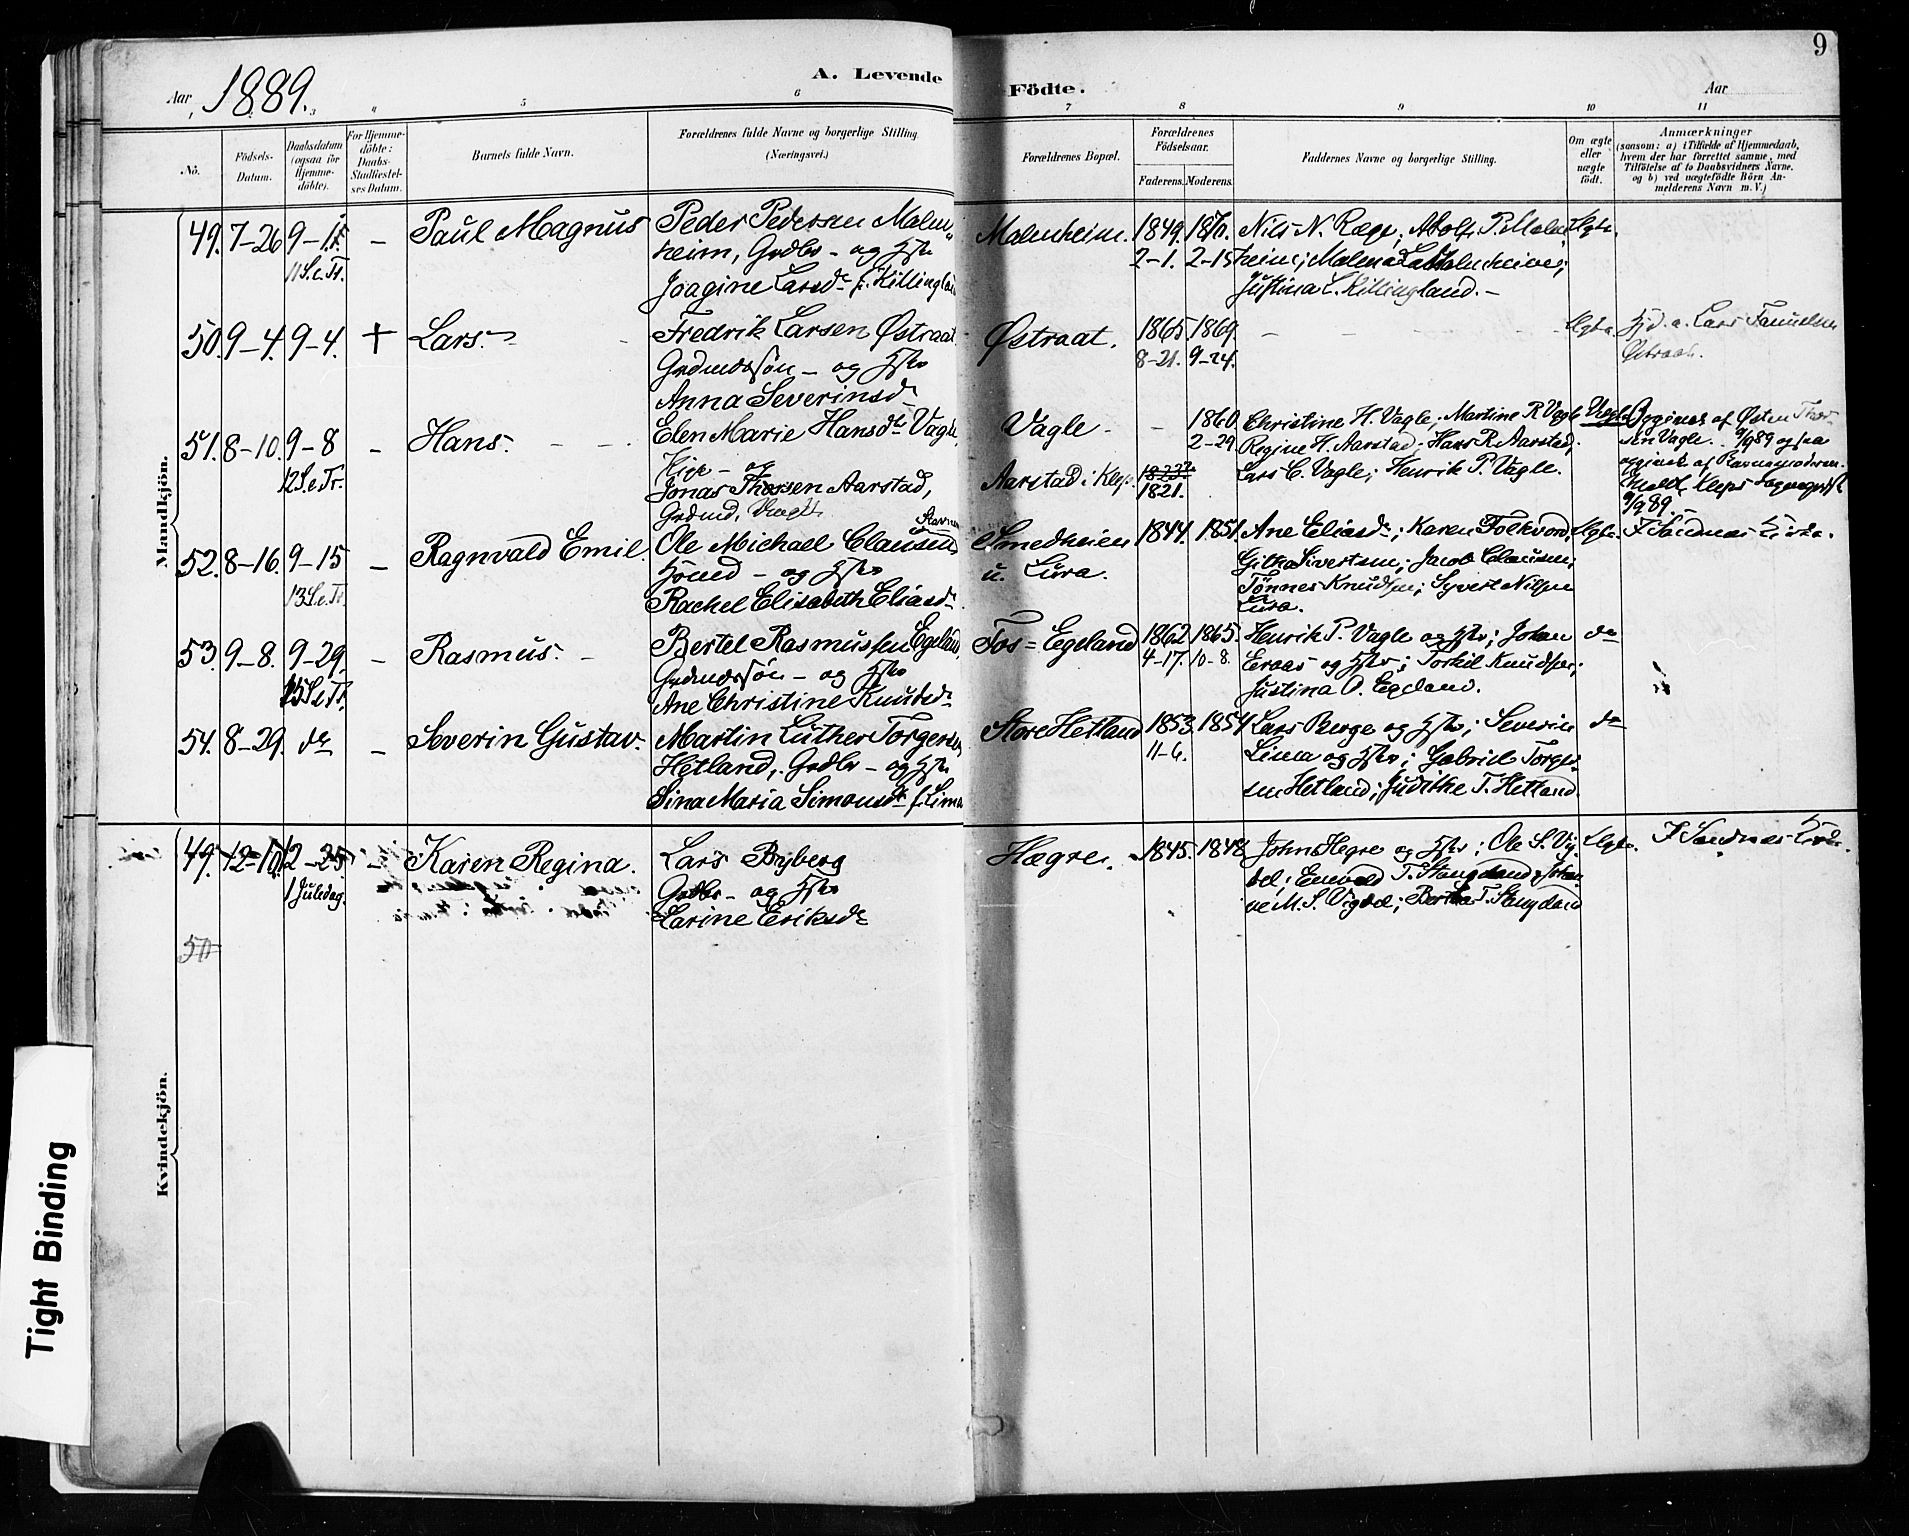 1889.
A. Levende
Födte.
9
Aar
Aar
5
6
7
8
9
10
11
No.
Födsels-
Datum.
Daabsdatum
(ogsaa for
Hjemme-
döbte).
For Hjemme-
döbte:
Daabs-
Stadfæstel-
ses Datum.
Barnets fulde Navn.
Forældrenes fulde Navne og borgerlige Stilling.
(Næringsvei.)
Forældrenes Bopæl.
Forældrenes
Födselsaar.
Faderens. Moderens.
Faddernes Navne og borgerlige Stilling.
Om ægte
eller
uægte
födt.
Anmærkninger
(saasom: a) i Tilfælde af Hjemmedaab,
hvem der har forrettet samme, med
Tilföielse af to Daabsvidners Navne,
og b) ved uægtefödte Börn An-
melderens Navn m. V.)
Mandkjön.
49. 7-26 9-1
11 S.e.Tr.
-
Paul Magnus
Peder Pedersen Malm-
heim, Grdbr - og Hstr
Joagine Larsdr f. Killingland
Malmheim.
1849. 1870.
2-1. 2-15
Nils N. Ræge, Adolf P. Malm-
heim; Malena L. Malmheim;
Justina L. Killingland. -
Ægte.
50. 9-4. 9-4. †
Lars.
Fredrik Larsen Østraat
Grdmdssøn - og Hstr
Anna Severinsdr
Østraat.
1865 1869.
8-21. 9-24.
Ægte. Hjd. a. Lars
Østraat.
51. 8-10. 9-8 -
12 S.e.Tr.
Hans.
Elen Marie Hansdr Vagle,
Pige - og
Jonas Thorsen Aarstad,
Grdmd, Ungk.
Vagle -
Aarstad i Klep.
- 1860.
2-29
1821.
Christine H. Vagle; Martine R Vagle
Regine H. Aarstad; Hans R Aarstad;
Lars C. Vagle; Henrik P. Vagle.
Uægte
Opgivet af Østen Thor-
sen Vagle. 9/9 89 og saa
opgivet af Barnemoderen.
Meldt Klep Sogneprest
9/9 89.
52. 8-16. 9-15 -
13 S.e.Tr.
Ragnvald Emil
Ole Michael Clausen
- og Hstr
Rachel Elisabeth Eliasdr
Smedheien
u. Lura.
1844. 1851.
Ane Eliasdr; Karen Folkvord,
Githa Sivertsen; Jacob Clausen;
Tønnes Knudsen; Syvert Nilsen
Lura.
Ægte. I Sandnes Kirke.
53. 9-8. 9-29 -
15 S.e.Tr.
Rasmus.
Bertel Rasmussen Egeland,
Grdmdssøn - og Hstr
Ane Christine Knutsdr
Fos-Egeland
1862 1865.
4-17. 10-8.
Henrik P. Vagle og Hstr; Johan
Eraas og Hstr; Torkil Knudsen;
Justina O. Egeland.
do
54. 8-29. do -
Severin Gustav.
Martin Luther Torgersen
Hetland, Grdbr - og Hstr
Sina Maria Simonsdr f. Lima
Store Hetland
1853. 1854
11-6.
Lars Berge og Hstr; Severin
Lima og Hstr; Gabriel Torger-
sen Hetland; Judithe T. Hetland.
do
Kvindekjön.
49. 12-10. 12-25 -
1 Juledag.
Karen Regina.
Lars Byberg
Grdbr - og Hstr
Larine Eriksdr
Hægre.
1845. 1848
John Hegre og Hstr; Ole S. Vig-
del; Enevald T. Stangeland; Johan-
ne M. S. Vigdel; Bertha T. Stangeland
Ægte. I Sandnes Kirke.
50
Tight Binding